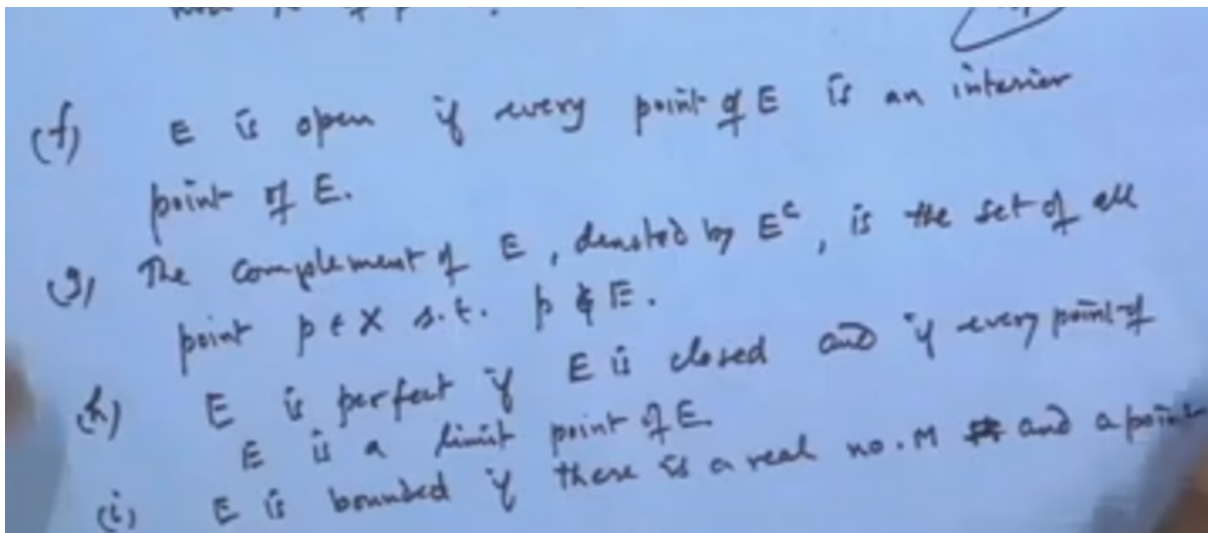 (f) E is open if every point of E is an interior
point of E.
(g) The complement of E, denoted by E^c, is the set of all
point p ∈ X s.t. p ∉ E.
(h) E is perfect if E is closed and if every point of
E is a limit point of E.
(i) E is bounded if there is a real no. M and a point